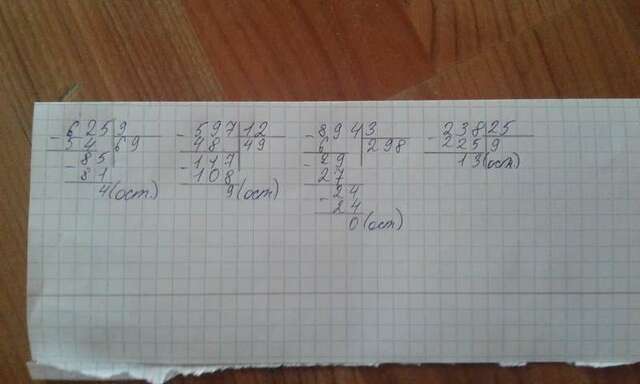 - 625 | 9
54 | 69
- 85
81
4 (ост.)
- 597 | 12
48 | 49
- 117
108
9 (ост.)
- 894 | 3
6 | 298
- 29
27
- 24
24
0 (ост.)
- 238 | 25
225 | 9
13 (ост.)